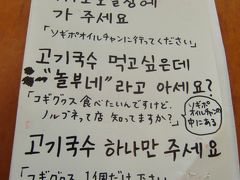 가 주세요
「ソギポオイルチャンに行ってください」
고기국수 먹고싶은데
"놀부네"라고 아세요?
「コギグクス食べたいんですけど、
ノルブネって店 知ってますか?」
ソギポ
オイルチャンの
中にある
고기국수 하나만 주세요
「コギグクス 1個だけ 下さい